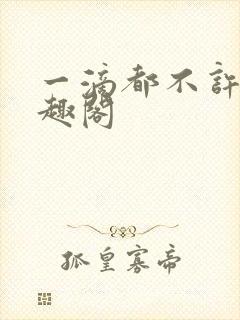 一滴都不許
趣阁
孤皇寡帝